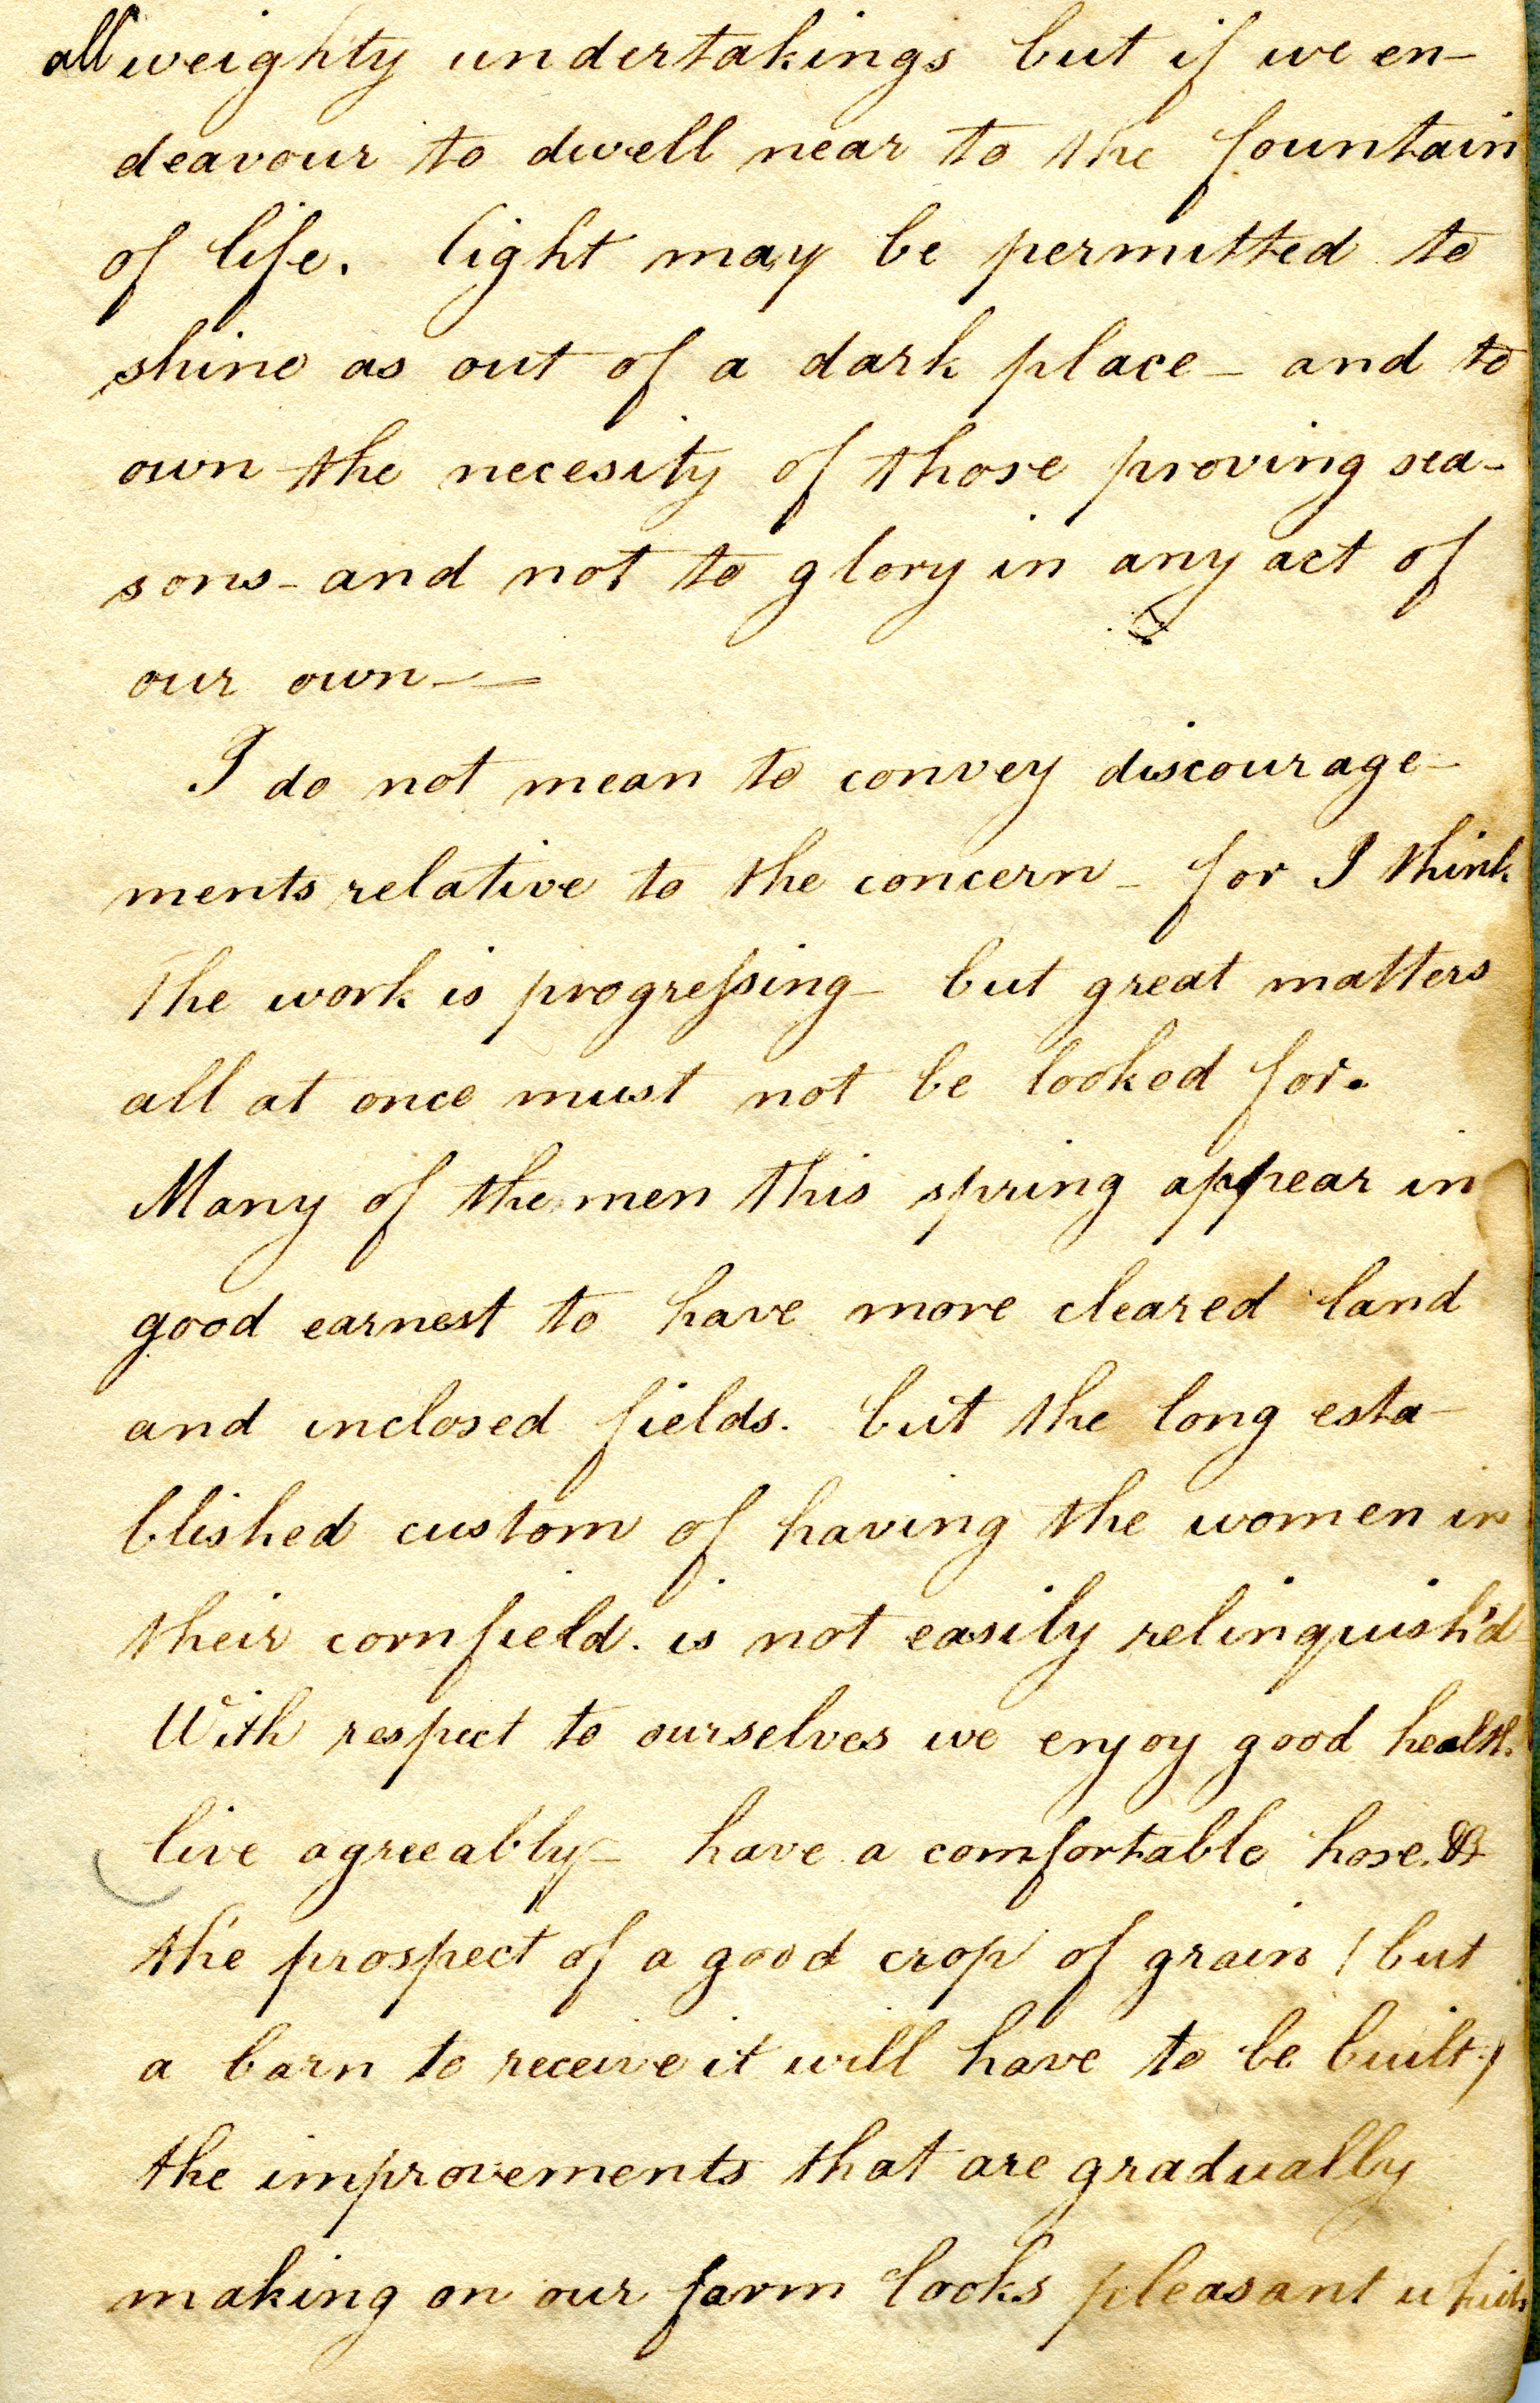 all weighty undertakings but if we en-
deavour to dwell near to the fountain
of life. light may be permitted to
shine as out of a dark place - and to
own the necesity of those proving sea-
sons - and not to glory in any act of
our own —
I do not mean to convey discourage-
ments relative to the concern - for I think
the work is progressing - but great matters
all at once must not be looked for.
Many of the men this spring appear in
good earnest to have more cleared land
and inclosed fields. but the long esta-
blished custom of having the women in
their cornfield. is not easily relinquish'd
With respect to ourselves we enjoy good health.
live agreeably - have a comfortable hose. &
the prospect of a good crop of grain (but
a barn to receive it will have to be built.)
the improvements that are gradually
making on our farm looks pleasant which